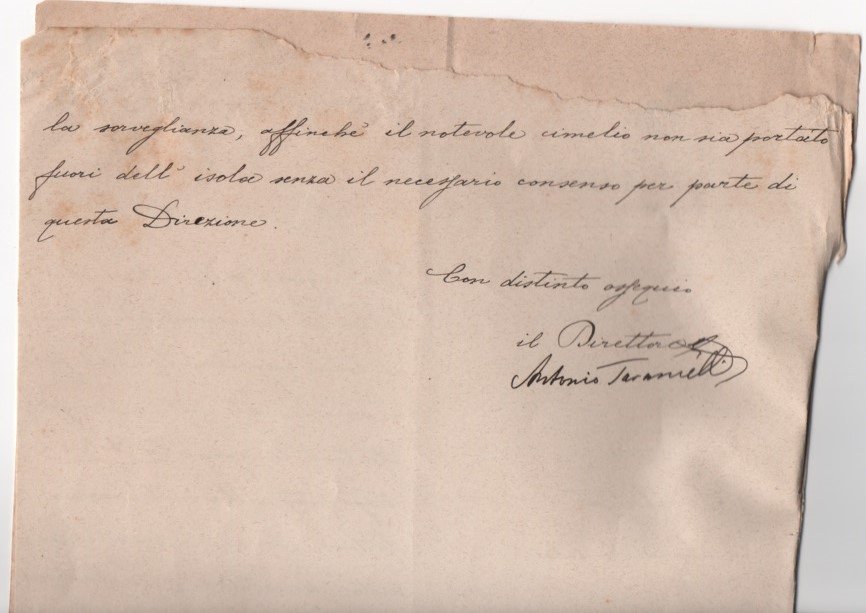 la sorveglianza, affinchè il notevole cimelio non sia portato
fuori dell' isola senza il necessario consenso per parte di
questa Direzione.
Con distinto ossequio
il Direttore
Antonio Taramelli